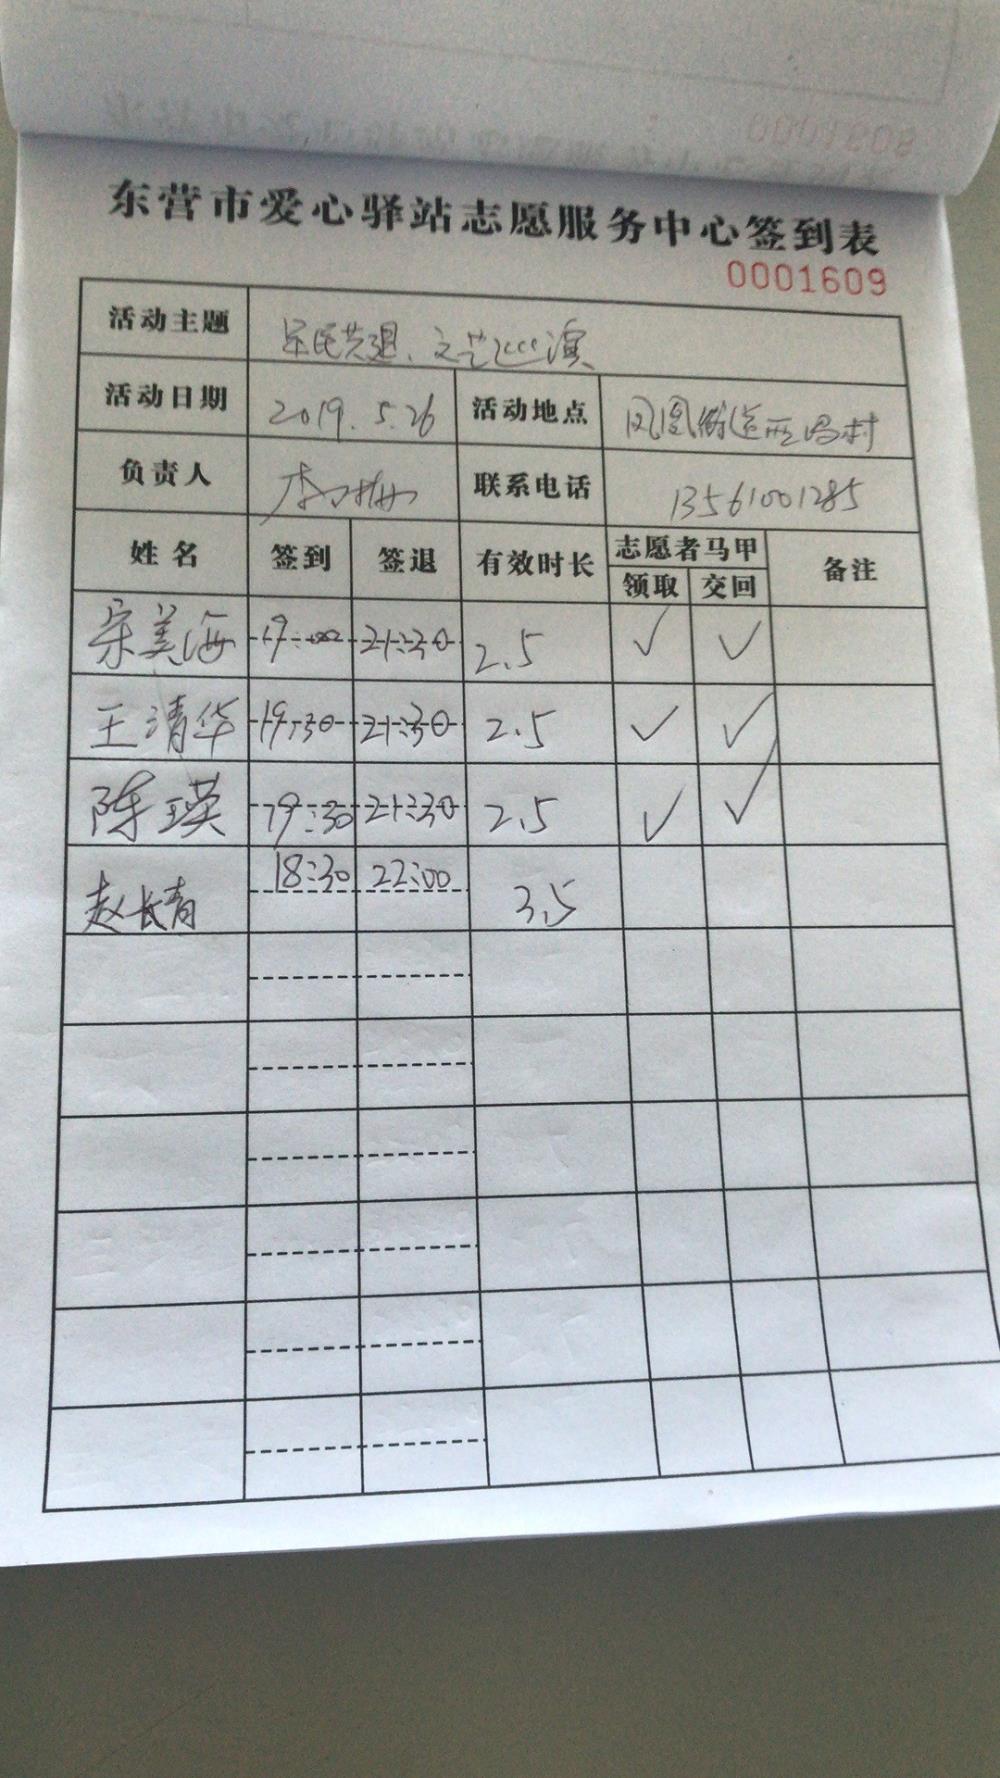 东营市爱心驿站志愿服务中心签到表
0001609
活动主题 文艺巡演
活动日期 2019.5.26 活动地点 凤凰街道西冯村
负责人 李 联系电话 13561001285
姓名 签到 签退 有效时长 志愿者马甲 备注
领取 交回
宋美海 19: 21:30 2.5 ✓ ✓
王清华 19:30 21:30 2.5 ✓ ✓
陈瑛 19:30 21:30 2.5 ✓ ✓
赵长青 18:30 22:00 3.5